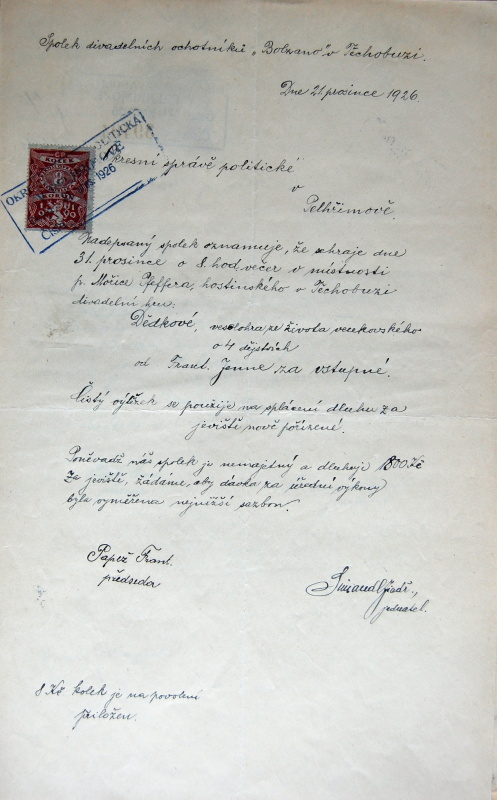 Spolek divadelních ochotníků „Bolzano“ v Těchobuzi.
Dne 21. prosince 1926.
Okresní správě politické
v
Pelhřimově.
Nadepsaný spolek oznamuje, že sehraje dne
31. prosince o 8. hod. večer v místnosti
p. Mořice Pfeffera, hostinského v Těchobuzi
divadelní hru:
Dědkové, veselohra ze života venkovského
o 4 dějstvích
od Frant. Jenne za vstupné.
Čistý výtěžek se použije na splácení dluhu za
jeviště nově pořízené.
Poněvadž náš spolek je nemajetný a dluhuje 1800 Kč
za jeviště, žádáme, aby dávka za úřední výkony
byla vyměřena nejnižší sazbou.
Papež Frant.
předseda
jednatel.
8 Kč kolek je na povolení
přiložen.
KOLEK
8
KORUN
1926